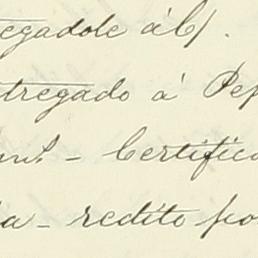 egadole á
tregado á Pep
- Certific
a - redito po